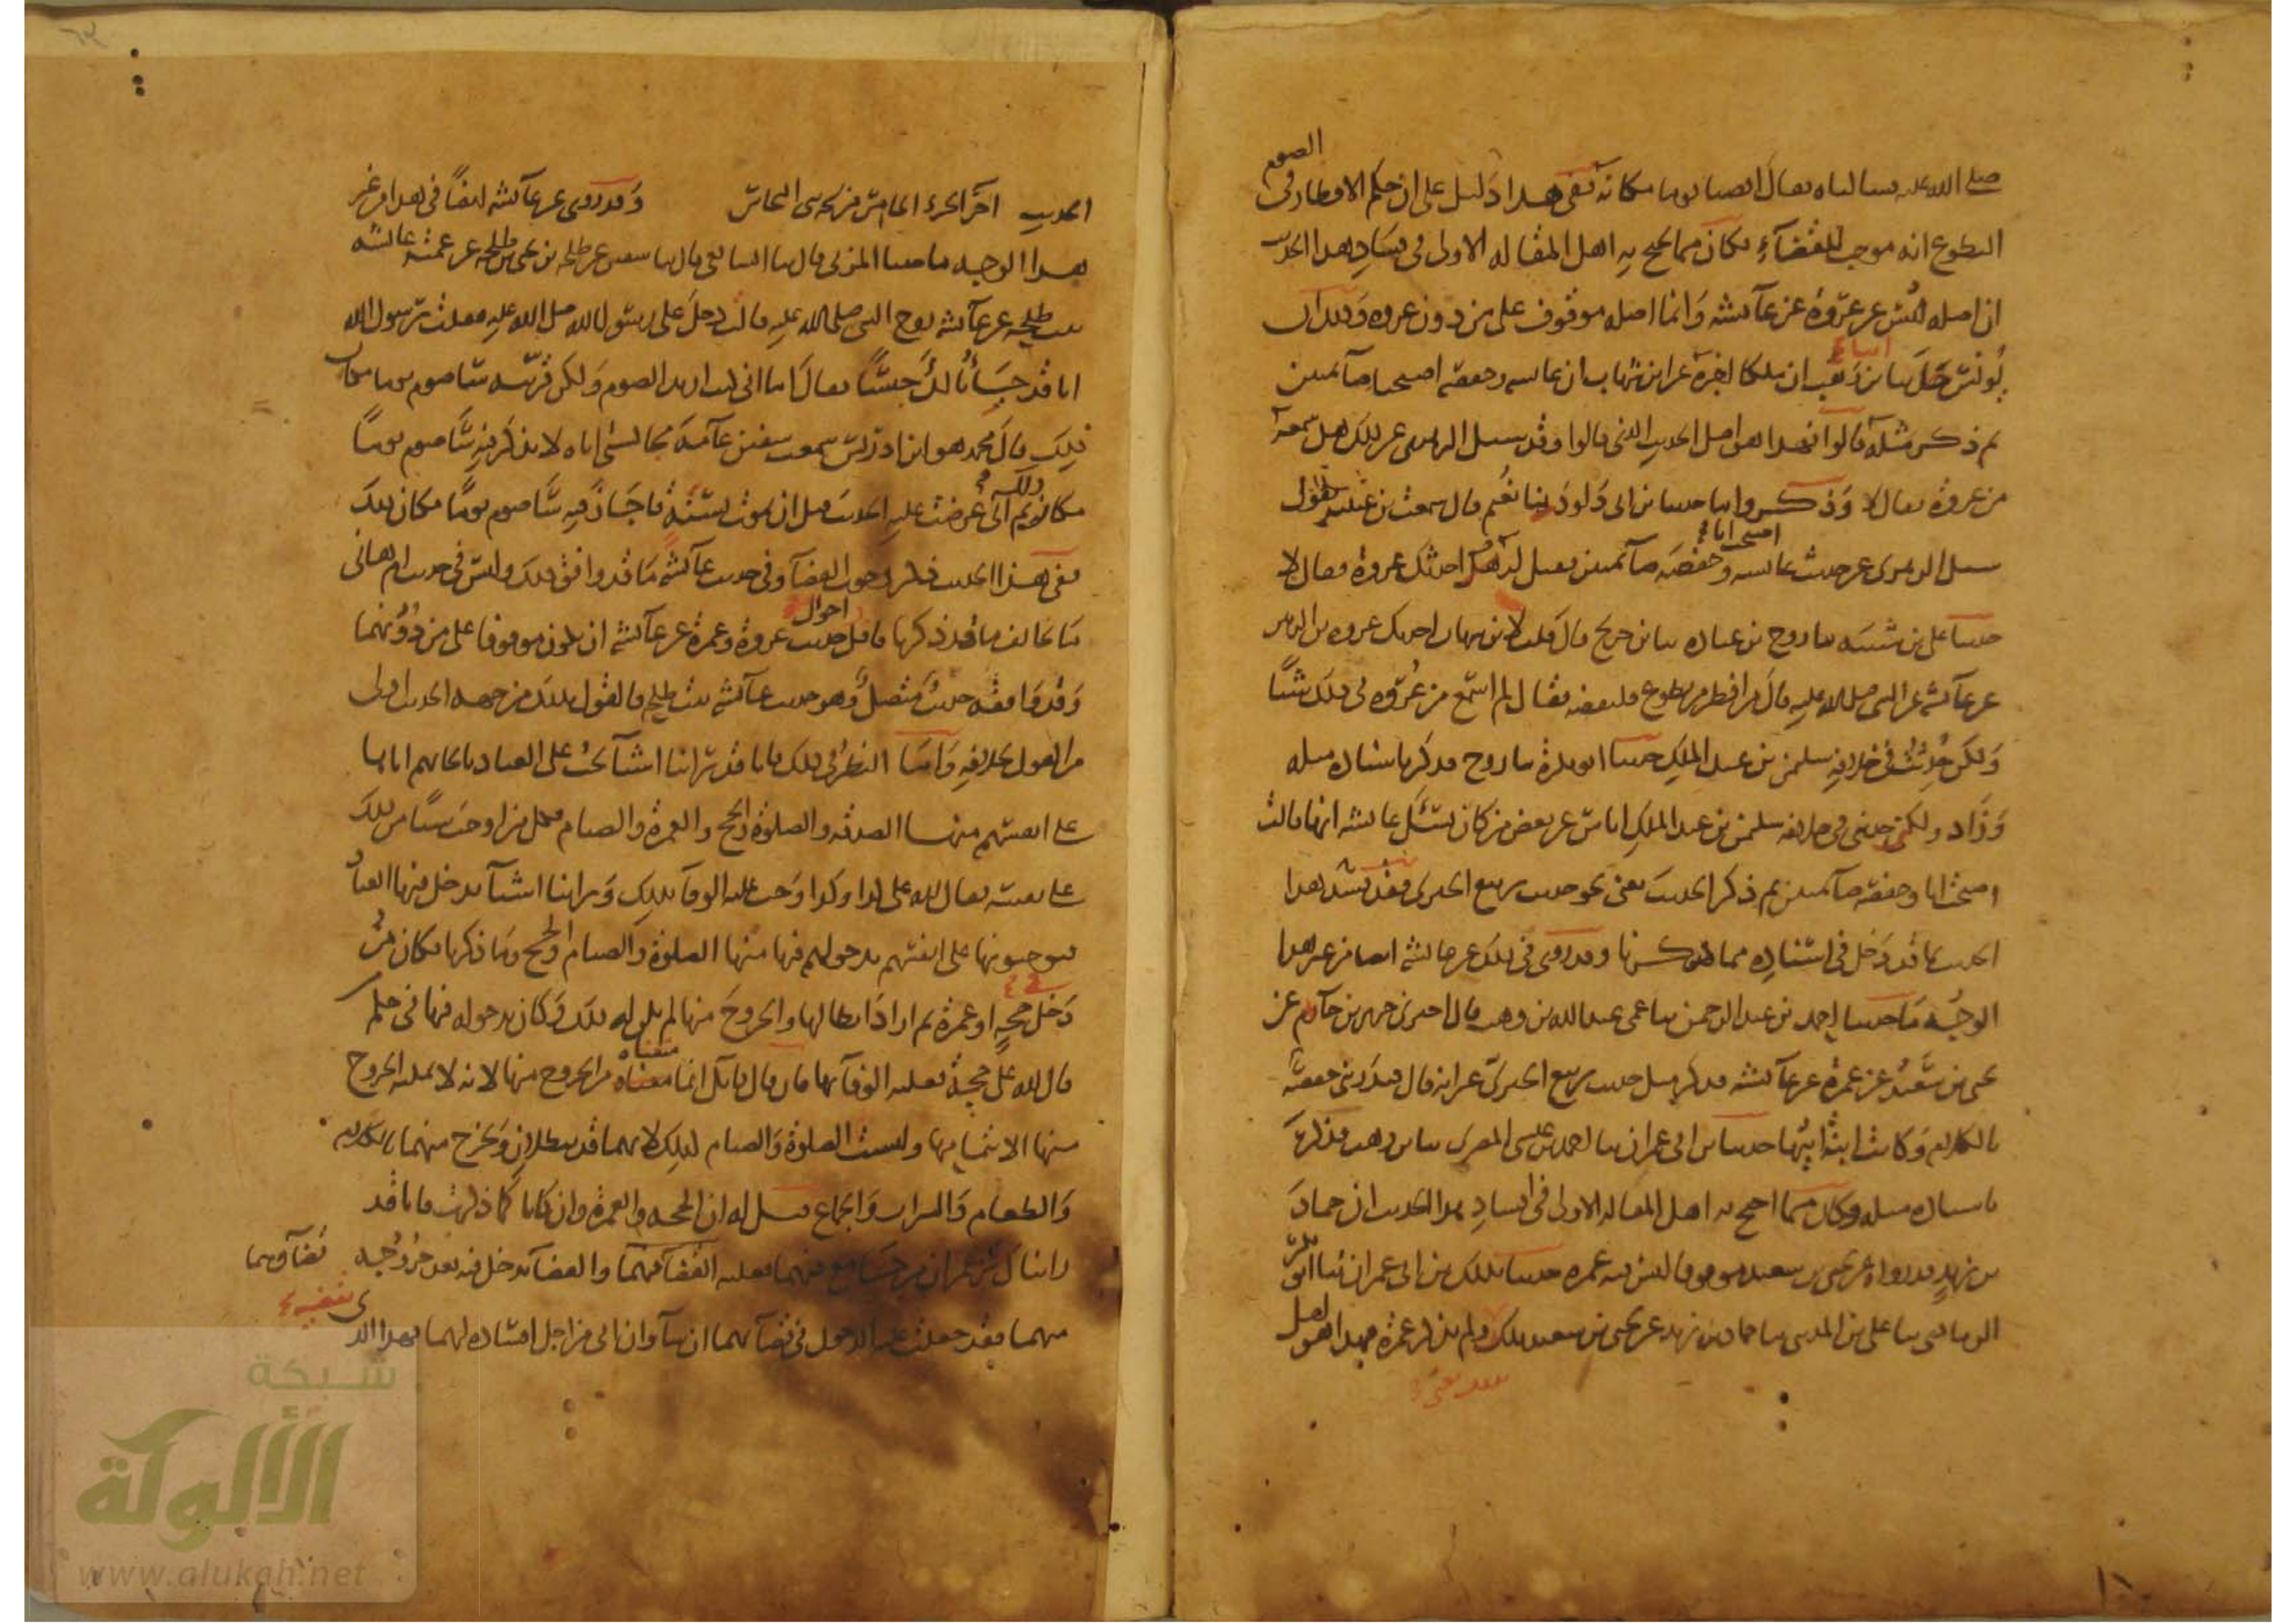 الصوم
صلى الله عليه فسالناه فقال اقضيا يوما مكانه ففى هذا دليل على ان حكم الافطار فى
التطوع انه موجب للقضآء فكان مما يحتج به اهل المقاله الاولى فى فساد هذا الحديث
ان اصله ليس عن عروة عن عآئشه وانما اصله موقوف على من دون عروه وذلك ان
يونس حدثنا قال انا ابن وهب ان ملكا اخبره عن ابن شهاب ان عائشه وحفصه اصبحتا صآئمتين
ثم ذكر مثله قالوا فهذا هو اصل الحديث الذى قالوا وقد سئل الزهرى عن ذلك هل سمعه
من عروة فقال لا وذكروا ما حدثنا بن ابى داود ثنا نعيم قال سمعت بن عيينه يقول
سئل الزهرى عن حديث عائشه اصبحت انا وحفصه صآئمتين فقيل له هو احدثك عروة فقال لا
حدثنا على بن شيبه ثنا روح بن عباده ثنا بن جريج قال قلت لابن شهاب احدثك عروه بن الزبير
عن عآئشه عن النبى صلى الله عليه قال من افطر من تطوع فليقضه فقال لم اسمع من عروه فى ذلك شيئا
ولكن حدثت فى خلافه سليمن بن عبد الملك حدثنا ابو بكرة ثنا روح فذكر باسناده مثله
وزاد ولكن حدثنى فى خلافه سليمن بن عبد الملك اناس عن بعض من كان يسئل عائشه انها قالت
اصبحت انا وحفصه صآئمتين ثم ذكر الحديث يعنى نحو حديث ربيع الجيزى فقد فسد هذا
الحديث بما قد دخل فى اسناده مما ذكرنا وقد روى فى ذلك عن عائشه ايضا من غير هذا
الوجه ما حدثنا احمد بن عبد الرحمن ثنا عمى عبد الله بن وهب قال اخبرنى جرير بن حازم عن
يحيى بن سعيد عن عمرة عن عآئشه فذكر مثل حديث ربيع الجيزى غير انه قال فبدرتنى حفصه
بالكلام وكانت ابنة ابيها حدثنا بن ابى عمران ثنا احمد بن عيسى المصرى ثنا بن وهب فذكر
باسناده مثله وكان مما احتج به اهل المقاله الاولى فى افساد هذا الحديث ان حماد
بن زيد قد رواه عن يحيى بن سعيد موقوفا ليس فيه عمره حدثنا بذلك بن ابى عمران ثنا ابو بكر
الرمادى ثنا على بن المدينى ثنا حماد بن زيد عن يحيى بن سعيد بذلك ولم يذكر عمرة فهذا هو اصل
الحديث اخر الجزء الخامس من تجزئى النحاس وقد روى عن عآئشه ايضا فى هذا من غير
هذا الوجه ما حدثنا المزنى قال ثنا الشافعى قال ثنا سفين عن طلحه بن يحيى بن طلحه عن عمته عائشه
بنت طلحه عن عآئشه زوج النبى صلى الله عليه قالت دخل على رسول الله صلى الله عليه فقلت يا رسول الله
انا قد خبأنا لك حيسا فقال اما انى كنت اريد الصوم ولكن قربيه ساصوم يوما مكان
ذلك قال محمد هو ابن ادريس سمعت سفين عآمة مجالستى اياه لا يذكر فيه ساصوم يوما
مكان ذلك ثم انى عرضت عليه الحديث قبل ان يموت بسنة فاجاز فيه ساصوم يوما مكان ذلك
ففى هذا الحديث ذكر وجوب القضآ وفى حديث عآئشه ما قد وافق ذلك وليس فى حديث ام هانى
ما يخالف ما قد ذكرنا فاقل احوال حديث عروة وعمرة عن عآئشه ان يكون موقوفا على من دونهما
وقد وافقه حديث متصل وهو حديث عآئشه بنت طلحه فالقول بذلك من جهه الحديث اولى
من القول بخلافه واما النظر فى ذلك فانا قد راينا اشيآ تجب على العباد بايجابهم اياها
على انفسهم منها الصدقه والصلوة والحج والعمرة والصيام فكل من اوجب شيئا من ذلك
على نفسه فقال لله على كذا وكذا وجب عليه الوفآ بذلك وراينا اشيآ يدخل فيها العباد
فيوجبونها على انفسهم بدخولهم فيها منها الصلوة والصيام والحج وما ذكرنا فكان من
دخل فى حجه او عمرة ثم اراد ابطالها والخروج منها لم يكن له ذلك وكان بدخوله فيها فى حكم من
قال لله على حجة فعليه الوفآ بها فان قال قائل انما منعناه من الخروج منها لانه لا يمكنه الخروج
منها الا بتمامها وليست الصلوة والصيام كذلك لانهما قد يبطلان ويخرج منهما بالكلام
والطعام والشراب والجماع قيل له ان الحجه والعمرة وان كانا كما ذكرت فانا قد
راينا ك تزعم ان من جامع فيهما فعليه قضآؤهما والقضآ يدخل فيه بعد خروجه
منهما فقد جعلت عليه الدخول فى قضآئهما ان شآ وان ابى من اجل افساده لهما فهذا الذى
شبكة
الألوكة
www.alukah.net